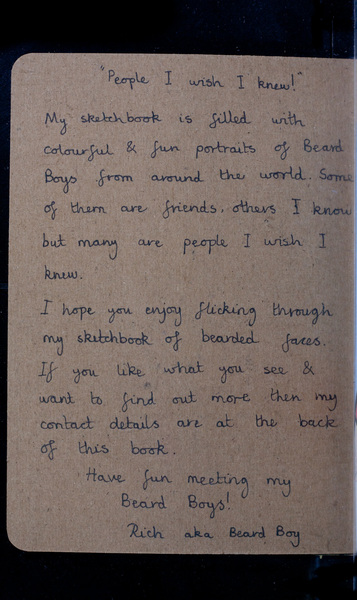 "People I wish I knew!"
My sketchbook is filled with
colourful & fun portraits of Beard
Boys from around the world. Some
of them are friends, others I know
but many are people I wish I
knew.
I hope you enjoy flicking through
my sketchbook of bearded faces.
If you like what you see &
want to find out more then my
contact details are at the back
of this book.
Have fun meeting my
Beard Boys!
Rich aka Beard Boy